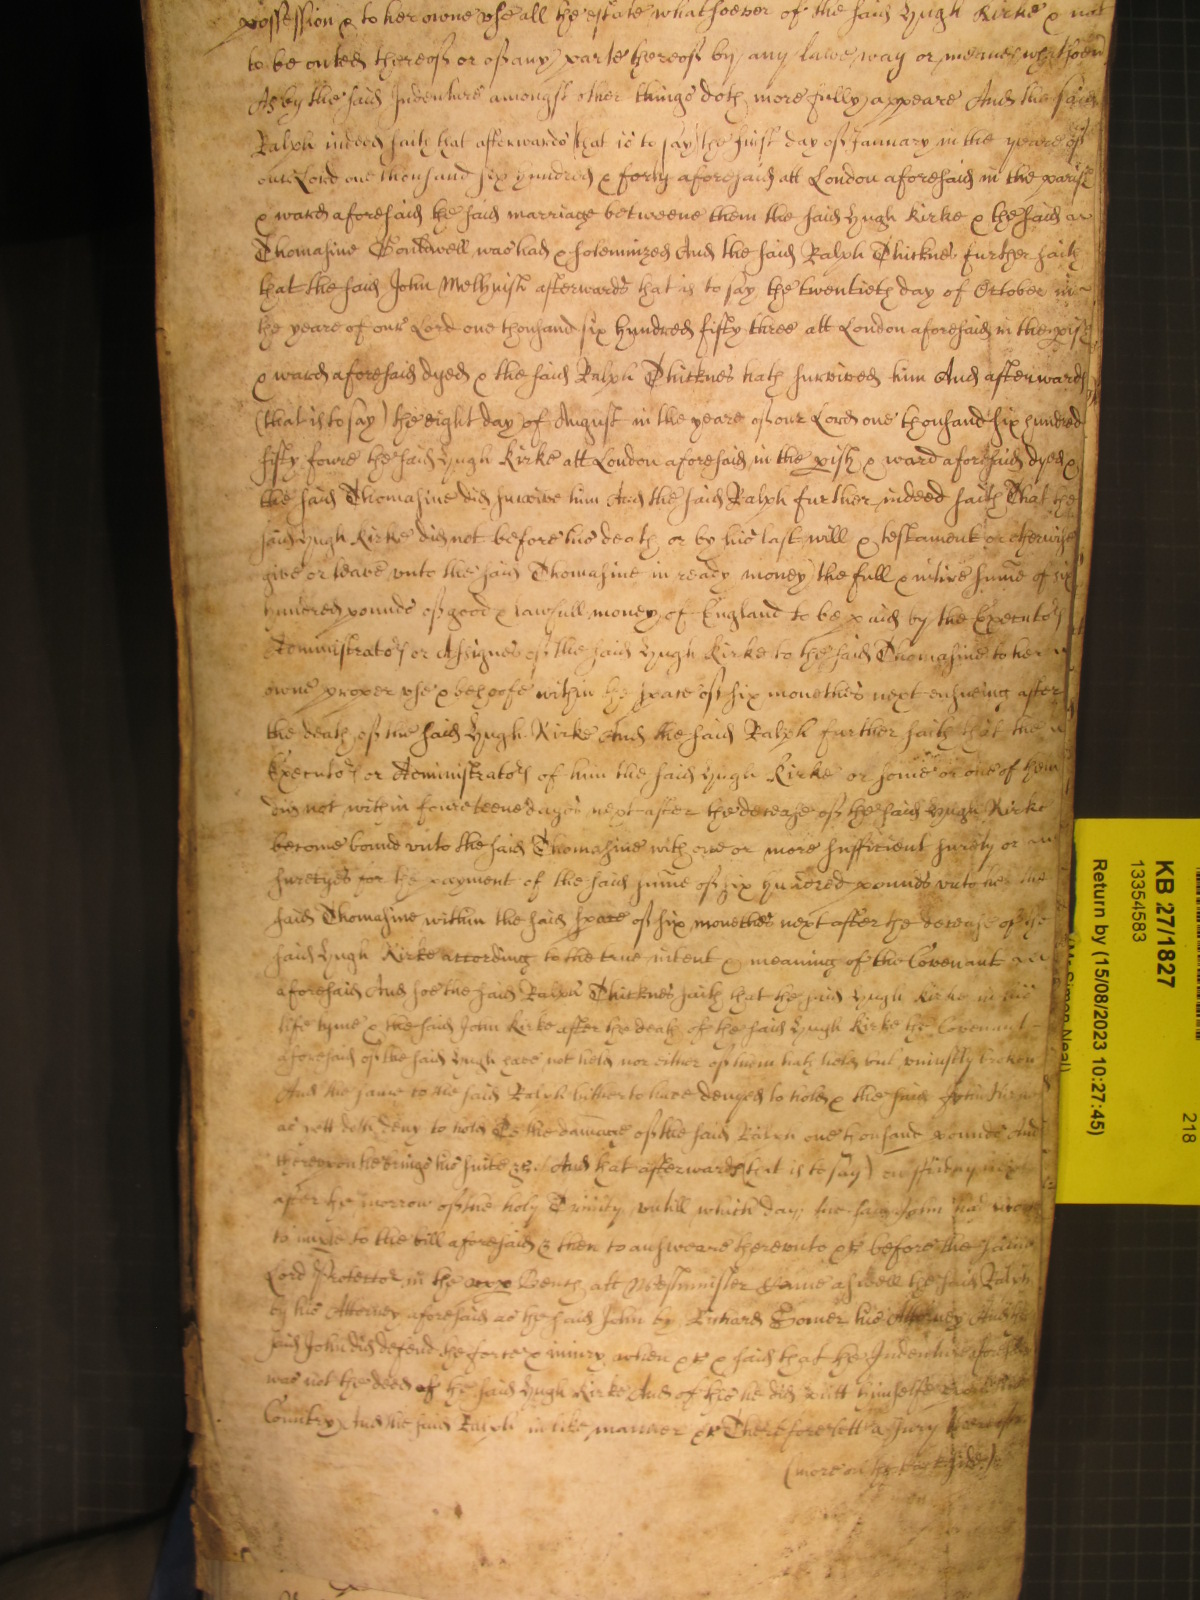 possession & to her owne use all the estate whatsoever of the said Hugh Kirke & not
to be outed thereof or of any parte thereof by any lawe way or meanes whatsoever
As by the said Indenture amongst other things doth more fully appeare And the said
Ralph indeed saith that afterwards that is to say the first day of January in the yeare of
our Lord one thousand six hundred & forty aforesaid att London aforesaid in the parish
& ward aforesaid the said marriage betweene them the said Hugh Kirke & the said
Thomasine was had & solemnized And the said Ralph Thicknes further saith
that the said John Melhuish afterwards that is to say the twentieth day of October in
the yeare of our Lord one thousand six hundred fifty three att London aforesaid in the pish
& ward aforesaid dyed & the said Ralph Thicknes hath survived him And afterwards
(that is to say) the eight day of August in the yeare of our Lord one thousand six hundred
fifty fowre the said Hugh Kirke att London aforesaid in the pish & ward aforesaid dyed &
the said Thomasine did survive him And the said Ralph further indeed saith That the
said Hugh Kirke did not before his death or by his last will & testament or otherwise
give or leave unto the said Thomasine in ready money the full & intire sume of six
hundred pounds of good & lawfull money of England to be paid by the Executors
Administrators or Assignes of the said Hugh Kirke to the said Thomasine to her
owne proper use & behoofe within the space of six monethes next ensueing after
the death of the said Hugh Kirke And the said Ralph further saith that the
Executors or Administrators of him the said Hugh Kirke or some or one of them
did not within fourteene dayes next after the decease of the said Hugh Kirke
become bound unto the said Thomasine with one or more sufficient surety or
suretyes for the payment of the said sume of six hundred pounds unto her the
said Thomasine within the said space of six monethes next after the decease of the
said Hugh Kirke according to the true intent & meaning of the Covenant
aforesaid And soe the said Ralph Thicknes saith that the said Hugh Kirke in his
life tyme & the said John Kirke after the death of the said Hugh Kirke the Covenant
aforesaid of the said Hugh have not held nor either of them hath held but uniustly broken
And the same to the said Ralph hitherto have denyed to hold & the said John Kirke
as yett doth deny to hold To the damage of the said Ralph one thousand pounds And
thereupon he brings his suite &c And that afterwards (that is to say) on ffriday next
after the morrow of the holy Trinity untill which day the said John had leave
to imple to the bill aforesaid & then to answeare thereunto &c before the said
Lord Protector in the upp Bench att Westminster Came aswell the said Ralph
by his Attorney aforesaid as the said John by Richard his Attorney And the
said John did defend the force & iniury when &c & said that the Indenture aforesaid
was not the deed of the said Hugh Kirke And of this he did putt himselfe upon the
Country And the said Ralph in like manner &c Therefore lett a Jury thereof
(more on the backside)
KB 27/1827
13354583
218
Return by (15/08/2023 10:27:45)
(Mr Simon Neal)